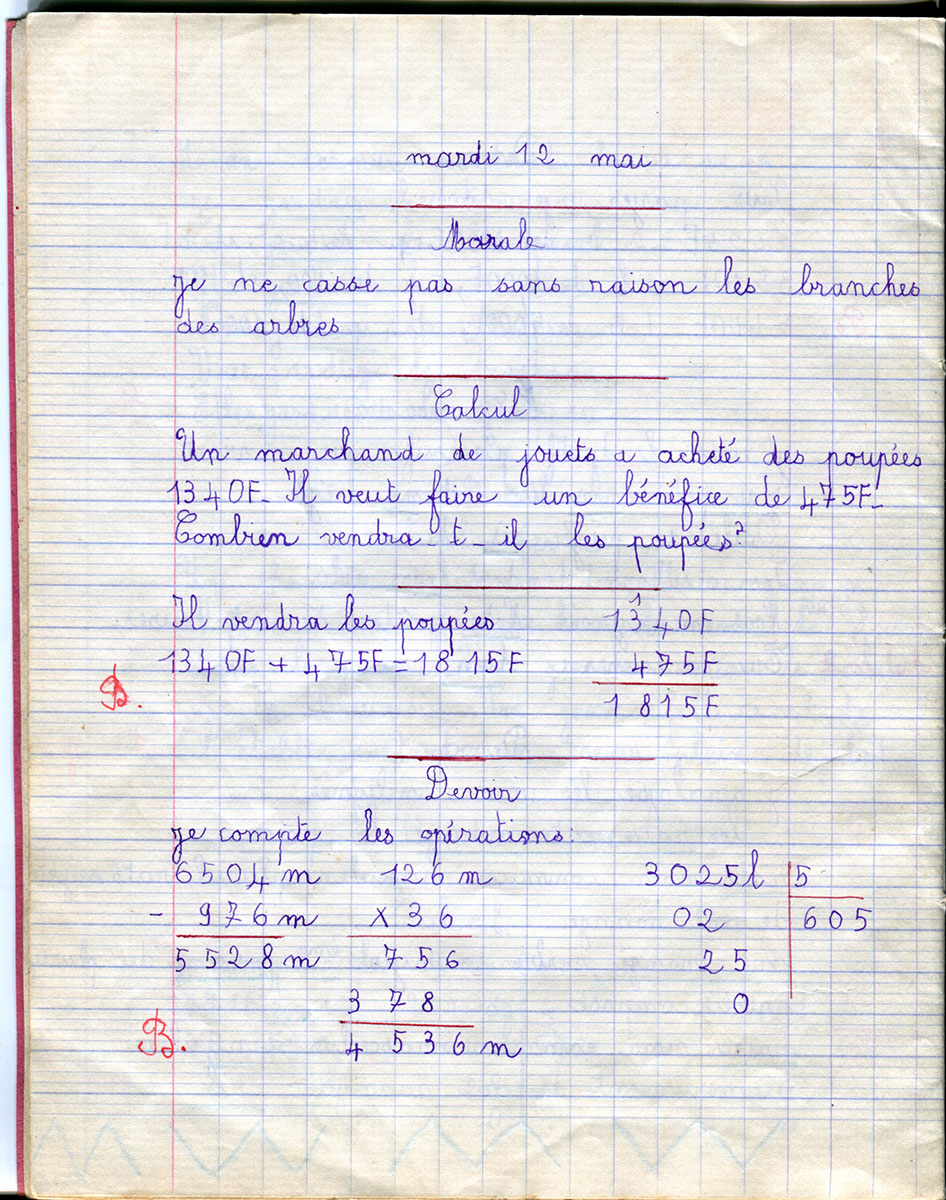 mardi 12 mai
Morale
je ne casse pas sans raison les branches
des arbres
Calcul
Un marchand de jouets a acheté des poupées
1340F. Il veut faire un bénéfice de 475F.
Combien vendra-t-il les poupées?
1
Il vendra les poupées 1340F
1340F + 475F = 1815F 475F
B. 1815F
Devoir
je compte les opérations:
6504m 126m 3025l 5
- 976m x 36 02 605
5528m 756 25
378 0
B. 4536m